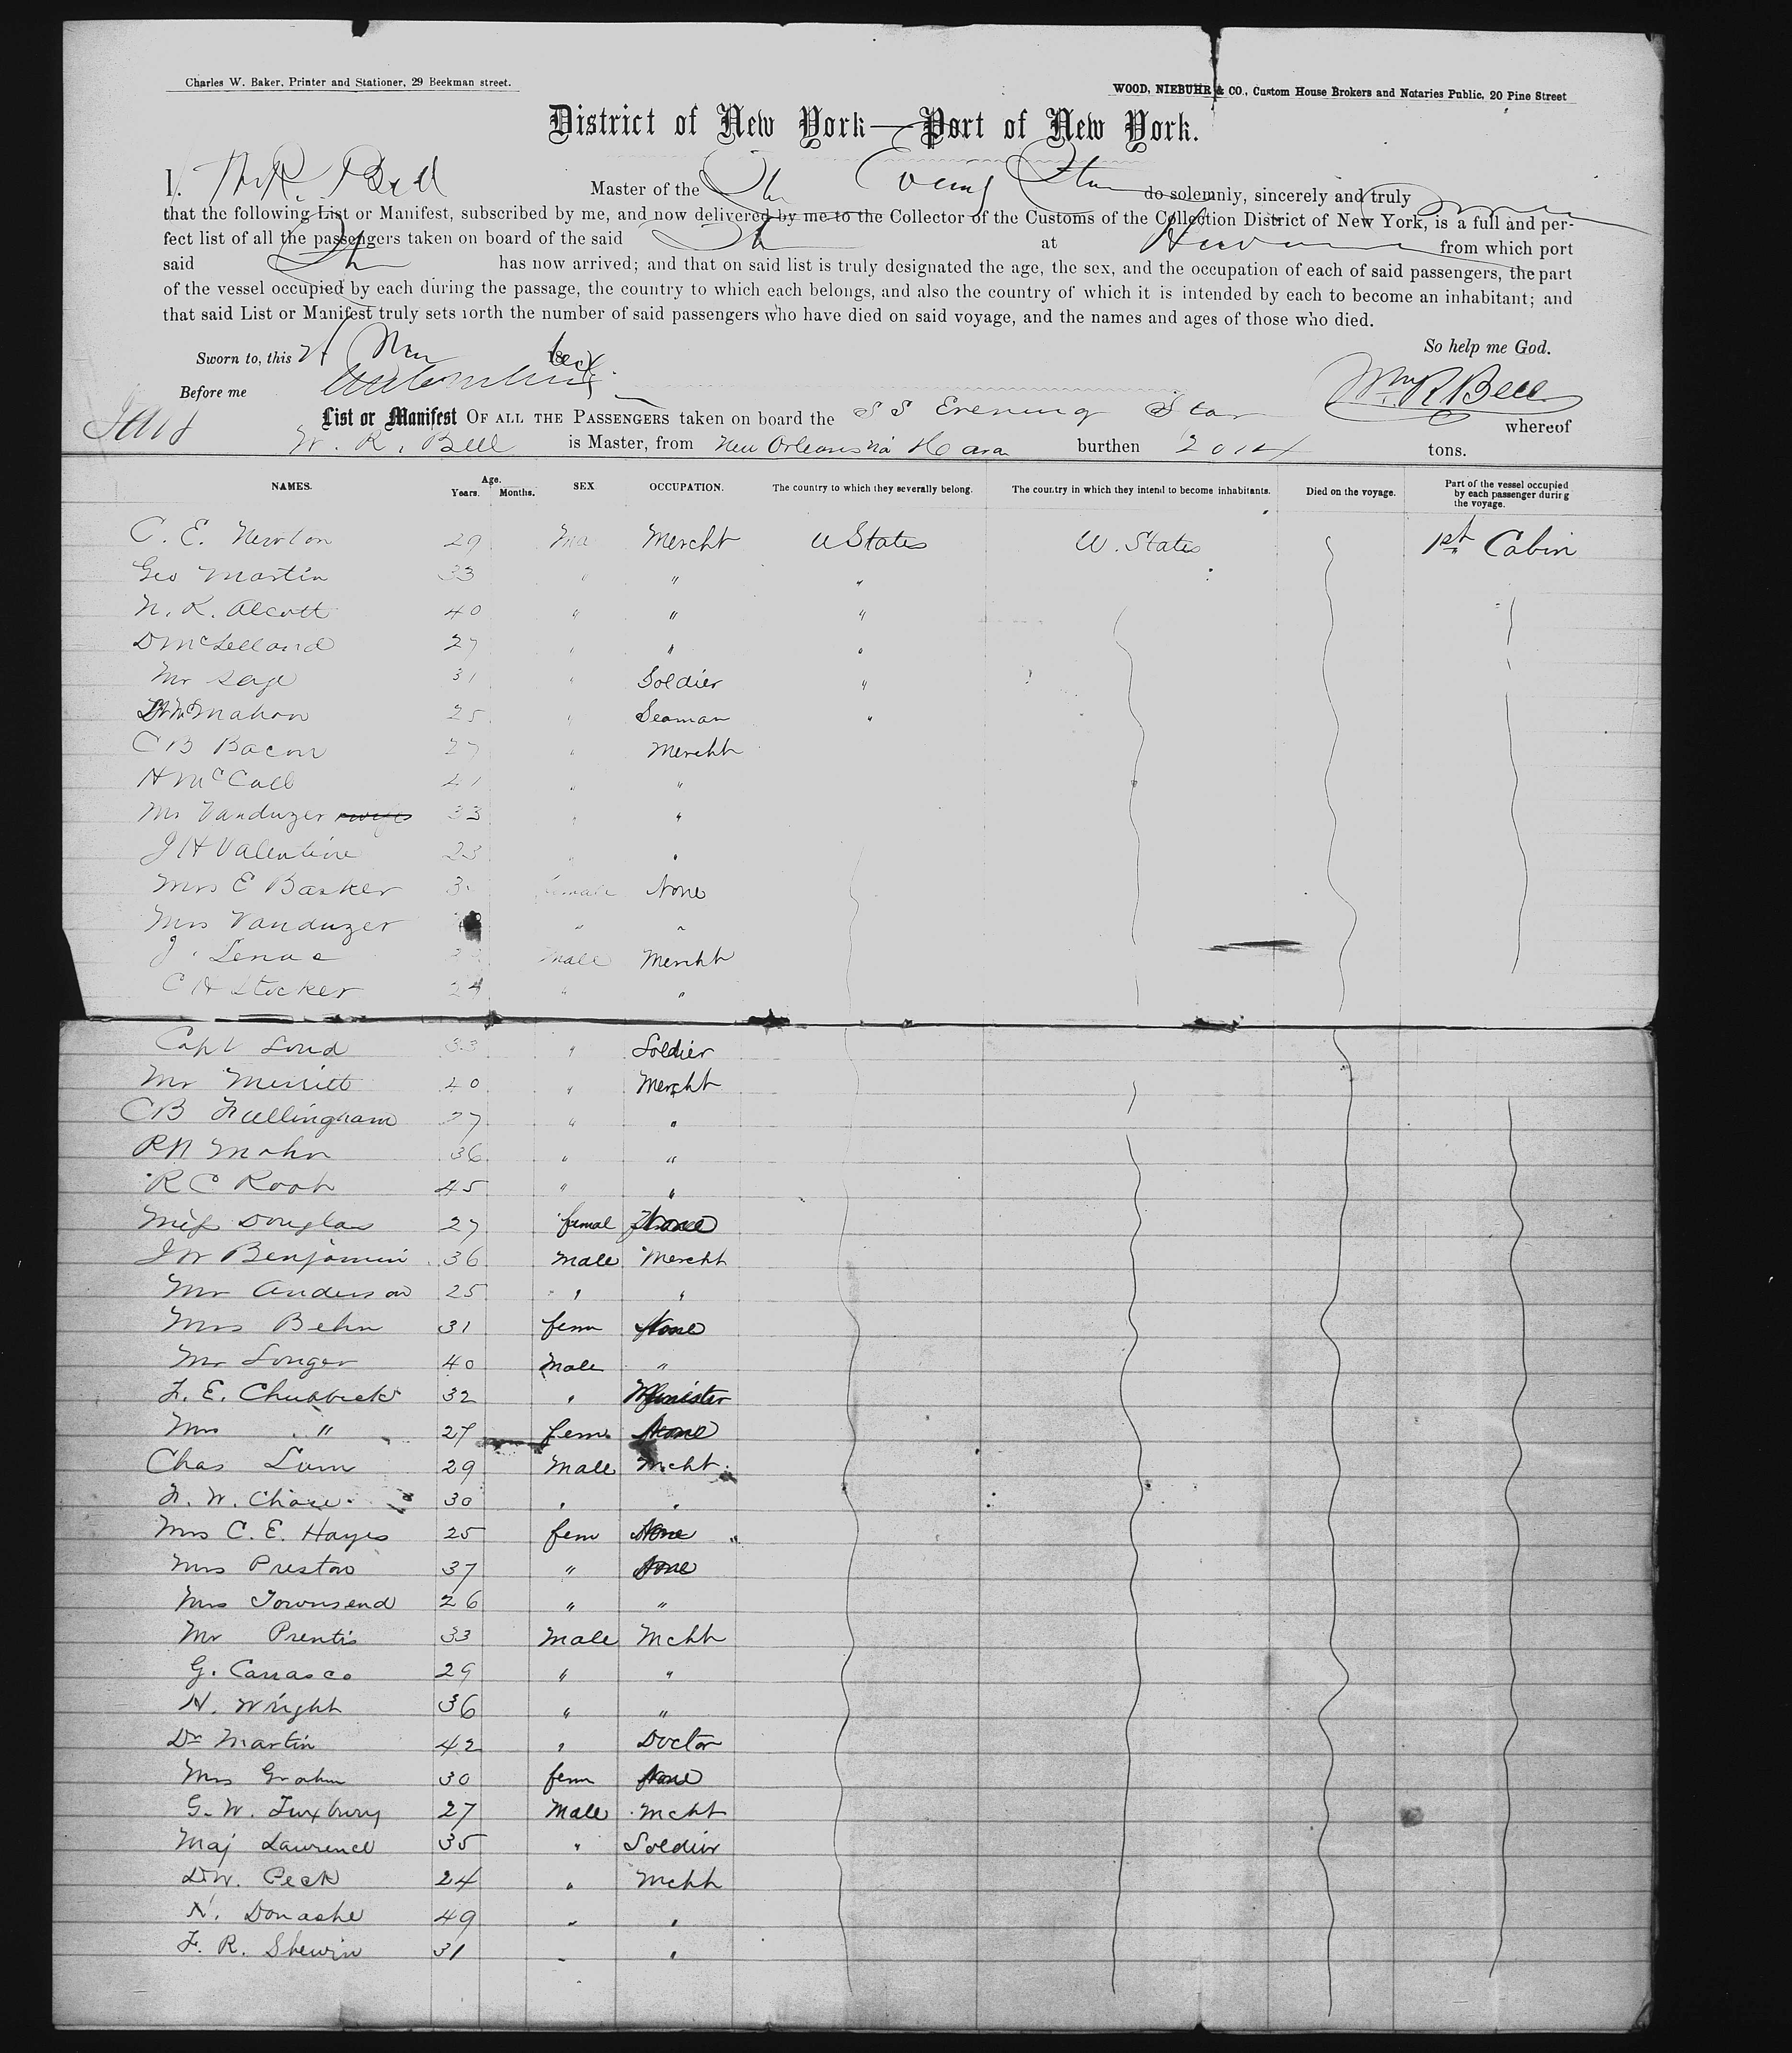 Charles W. Baker, Printer and Stationer, 29 Beekman street.
WOOD, NIEBUHR & CO., Custom House Brokers and Notaries Public, 20 Pine Street
District of New York—Port of New York.
I. Wm R Bell Master of the Str Evening Star do solemnly, sincerely and truly
that the following List or Manifest, subscribed by me, and now delivered by me to the Collector of the Customs of the Collection District of New York, is a full and per-
fect list of all the passengers taken on board of the said Str at Havana from which port
said Str has now arrived; and that on said list is truly designated the age, the sex, and the occupation of each of said passengers, the part
of the vessel occupied by each during the passage, the country to which each belongs, and also the country of which it is intended by each to become an inhabitant; and
that said List or Manifest truly sets forth the number of said passengers who have died on said voyage, and the names and ages of those who died.
So help me God.
Sworn to, this 18
Before me
Wm. R Bell
List or Manifest OF ALL THE PASSENGERS taken on board the S S Evening Star whereof
W. R. Bell is Master, from New Orleans via Havana burthen 2014 tons.
NAMES. Age. Years. Months. SEX. OCCUPATION. The country to which they severally belong. The country in which they intend to become inhabitants. Died on the voyage. Part of the vessel occupied by each passenger during the voyage.
C. E. Newton 29 Ma Mercht U States U. States 1st Cabin
Geo Martin 33 " " "
N. K. Alcott 40 " " "
D McLelland 27 " " "
Mr Sage 31 " Soldier "
McMahon 25 " Seaman "
C B Bacon 27 " Mercht
H McCall 41 " "
Mr Vanduzer 33 " "
J H Valentine 23 " "
Mrs E Barker female None
Mrs Vanduzer " "
J. Male Mercht
C H Stocker 24 " "
Capt Loud 33 " Soldier
Mr Merritt 40 " Mercht
C B Fullingham 27 " "
R N Mohr 36 " "
R C Root 45 " "
Miss Douglas 27 femal None
J W Benjamin 36 Male Mercht
Mr Anderson 25 " "
Mrs Behn 31 fem None
Mr Longer 40 Male "
F. E. Chubbuck 32 " Minister
Mrs " 27 fem. None
Chas Lum 29 Male Mcht.
F. W. Chase 30 " "
Mrs C. E. Hayes 25 fem None
Mrs Preston 37 " None
Mrs Townsend 26 " "
Mr Prentis 33 Male Mcht
G. Carrasco 29 " "
H. Wright 36 " "
Dr Martin 42 " Doctor
Mrs Grahm 30 fem None
G. W. Tuxbury 27 Male Mcht
Maj Lawrence 35 " Soldier
D W. Peck 24 " Mcht
N. Donashe 49 " "
F. R. Sherwin 31 " "